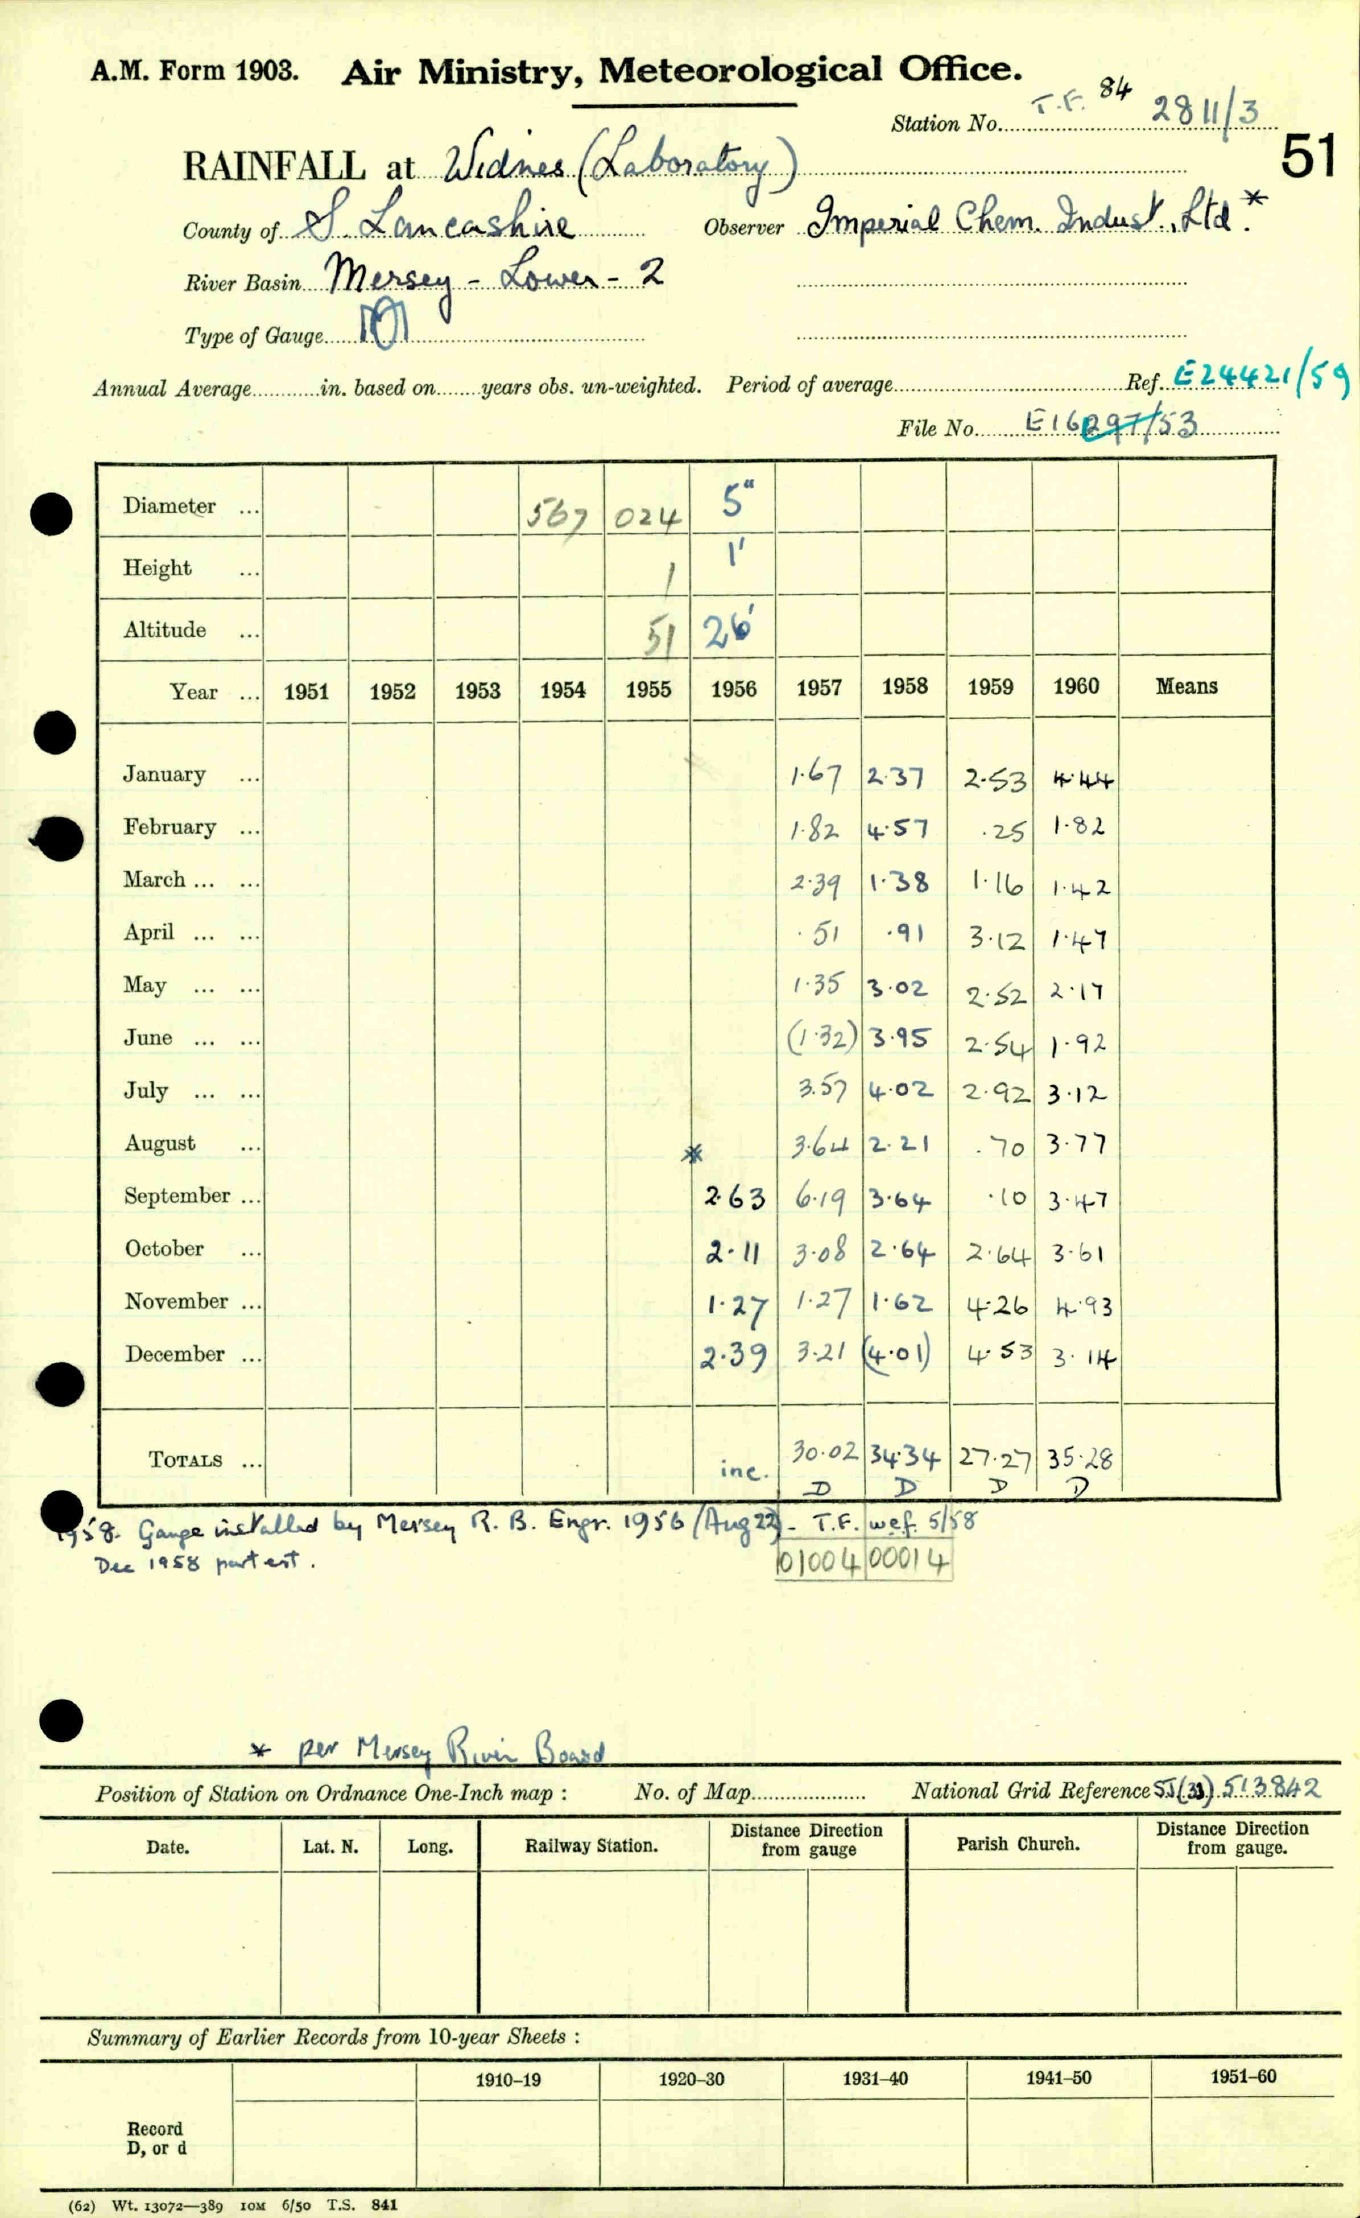 A.M. Form 1903. Air Ministry, Meteorological Office.
Station No. T.F. 84 2811/3
51
RAINFALL at Widnes (Laboratory)
County of S. Lancashire Observer Imperial Chem. Indust., Ltd.*
River Basin Mersey - Lower - 2
Type of Gauge M
Annual Average in. based on years obs. un-weighted. Period of average Ref. E24421/59
File No. E16297/53
Diameter ... 567 024 5"
Height ... 1 1'
Altitude ... 51 26'
Year ... 1951 1952 1953 1954 1955 1956 1957 1958 1959 1960 Means
January ... 1.67 2.37 2.53 4.44
February ... 1.82 4.57 .25 1.82
March ... ... 2.39 1.38 1.16 1.42
April ... ... .51 .91 3.12 1.47
May ... ... 1.35 3.02 2.52 2.17
June ... ... (1.32) 3.95 2.54 1.92
July ... ... 3.57 4.02 2.92 3.12
August ... * 3.64 2.21 .70 3.77
September ... 2.63 6.19 3.64 .10 3.47
October ... 2.11 3.08 2.64 2.64 3.61
November ... 1.27 1.27 1.62 4.26 4.93
December ... 2.39 3.21 (4.01) 4.53 3.14
TOTALS ... inc. 30.02 34.34 27.27 35.28
D D D D
1958. Gauge installed by Mersey R. B. Engr. 1956 (Aug 22) - T.F. w.e.f. 5/58
Dec 1958 part est. 01004 00014
* per Mersey River Board
Position of Station on Ordnance One-Inch map : No. of Map National Grid Reference SJ(33) 513842
Date. Lat. N. Long. Railway Station. Distance Direction from gauge Parish Church. Distance Direction from gauge.
Summary of Earlier Records from 10-year Sheets :
1910–19 1920–30 1931–40 1941–50 1951–60
Record
D, or d
(62) Wt. 13072—389 10M 6/50 T.S. 841